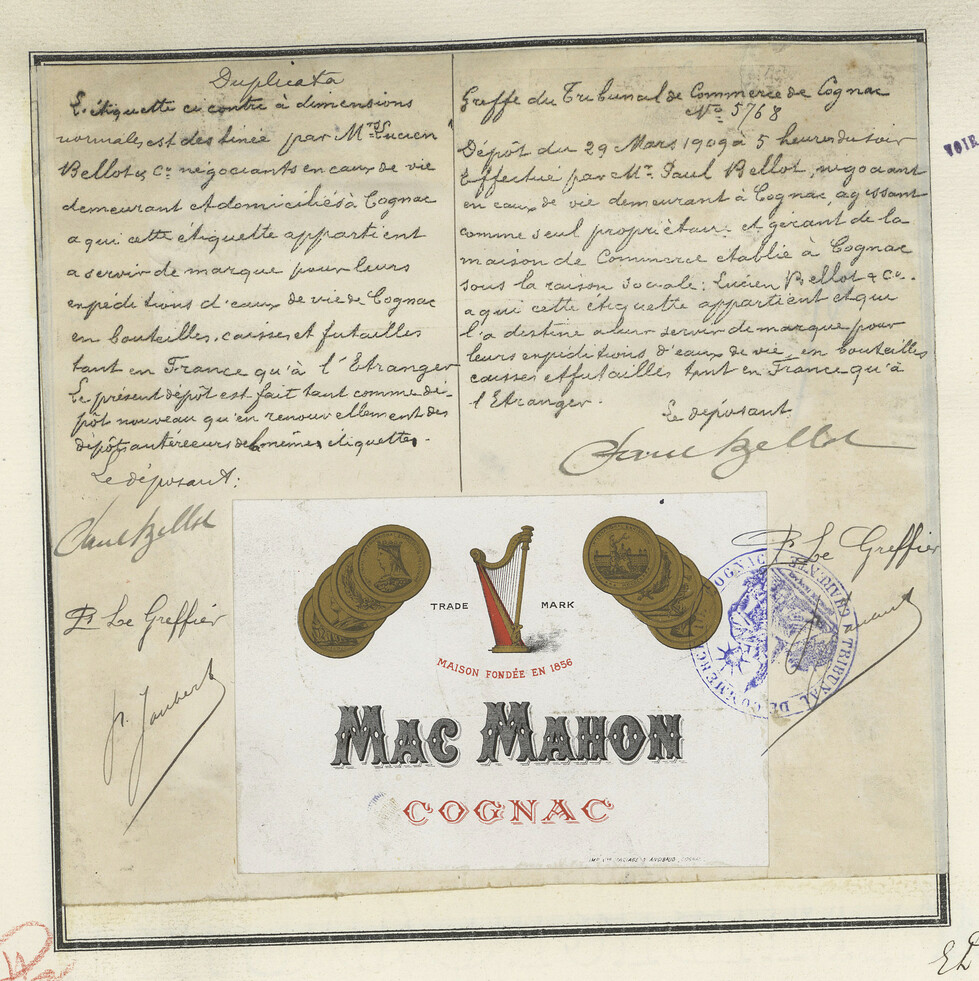 Duplicata
L'étiquette ci contre à dimensions
normales est destinée par Mrs Lucien
Bellot & Cie négociants en eaux de vie
demeurant et domiciliés à Cognac
a qui cette étiquette appartient
a servir de marque pour leurs
expéditions d'eaux de vie de Cognac
en bouteilles, caisses et futailles
tant en France qu'à l'Etranger
Le présent dépôt est fait tant comme dé-
pôt nouveau qu'en renouvellement des
dépôts antérieurs de mêmes étiquettes.
Le déposant:
Paul Bellot
Pr Le Greffier
Joubert
Greffe du Tribunal de Commerce de Cognac
No 5768
Dépôt du 29 Mars 1909 à 5 heures du soir
Effectué par Mr Paul Bellot, négociant
en eaux de vie demeurant à Cognac, agissant
comme seul propriétaire et gérant de la
maison de Commerce établie à Cognac
sous la raison sociale: Lucien Bellot & Cie.
a qui cette étiquette appartient et qui
l'a destine a leur servir de marque pour
leurs expéditions d'eaux de vie en bouteilles
caisses et futailles tant en France qu'à
l'Etranger.
Le déposant
Paul Bellot
Pr Le Greffier
VOIR
TRADE MARK
MAISON FONDÉE EN 1856
MAC MAHON
COGNAC
TRIBUNAL DE COMMERCE COGNAC